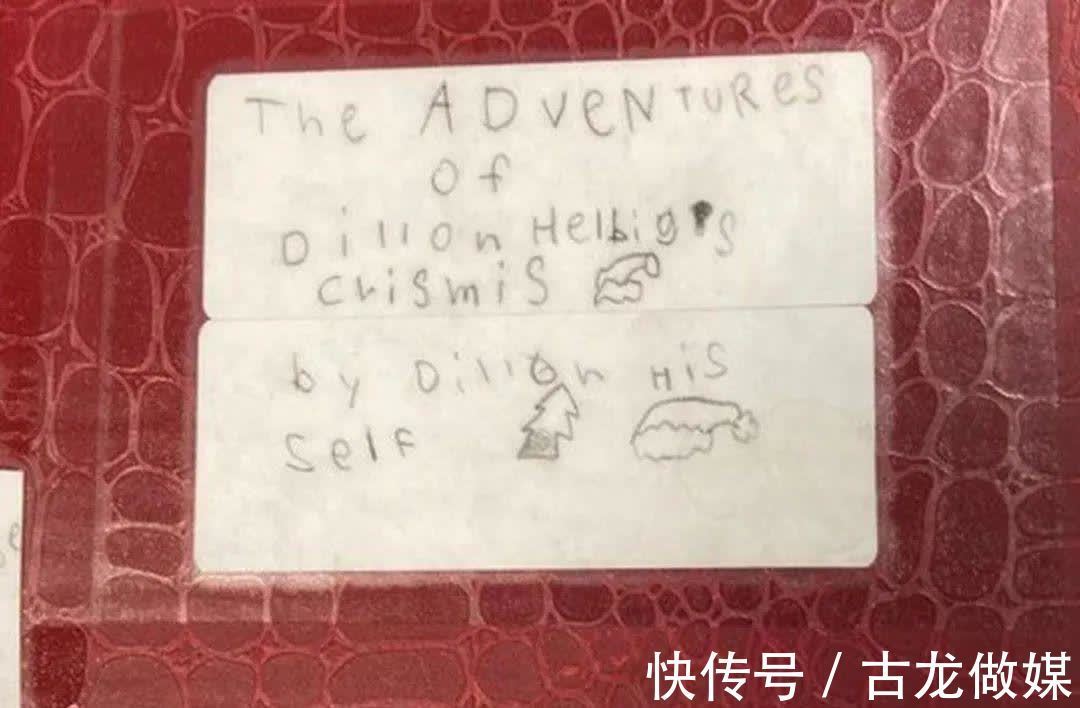 The ADVeNTURes
of
Dillon Helbig's
crismis
by Dillon His
Self
快传号 / 古龙做媒